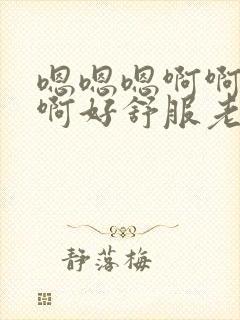 嗯嗯嗯啊啊
啊好舒服老
静落梅